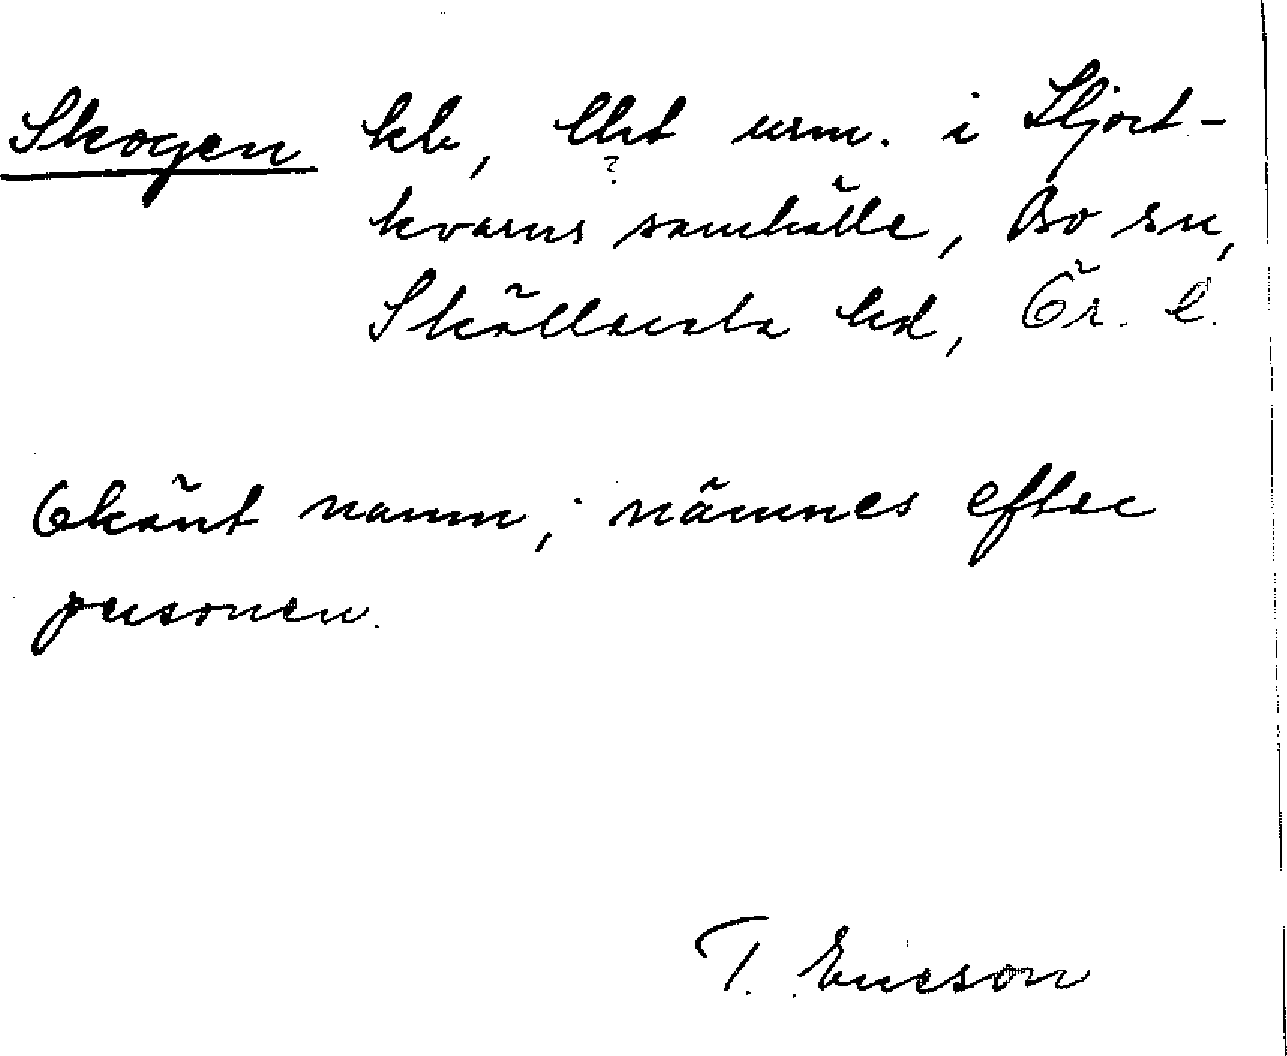 Skogen kb, lht urm. i Hjort-
?
kvarns samhälle, Bo sn,
Skyllersta hd, Ör. l.
Okänt namn; nämnes efter
personen.
T. Ericson